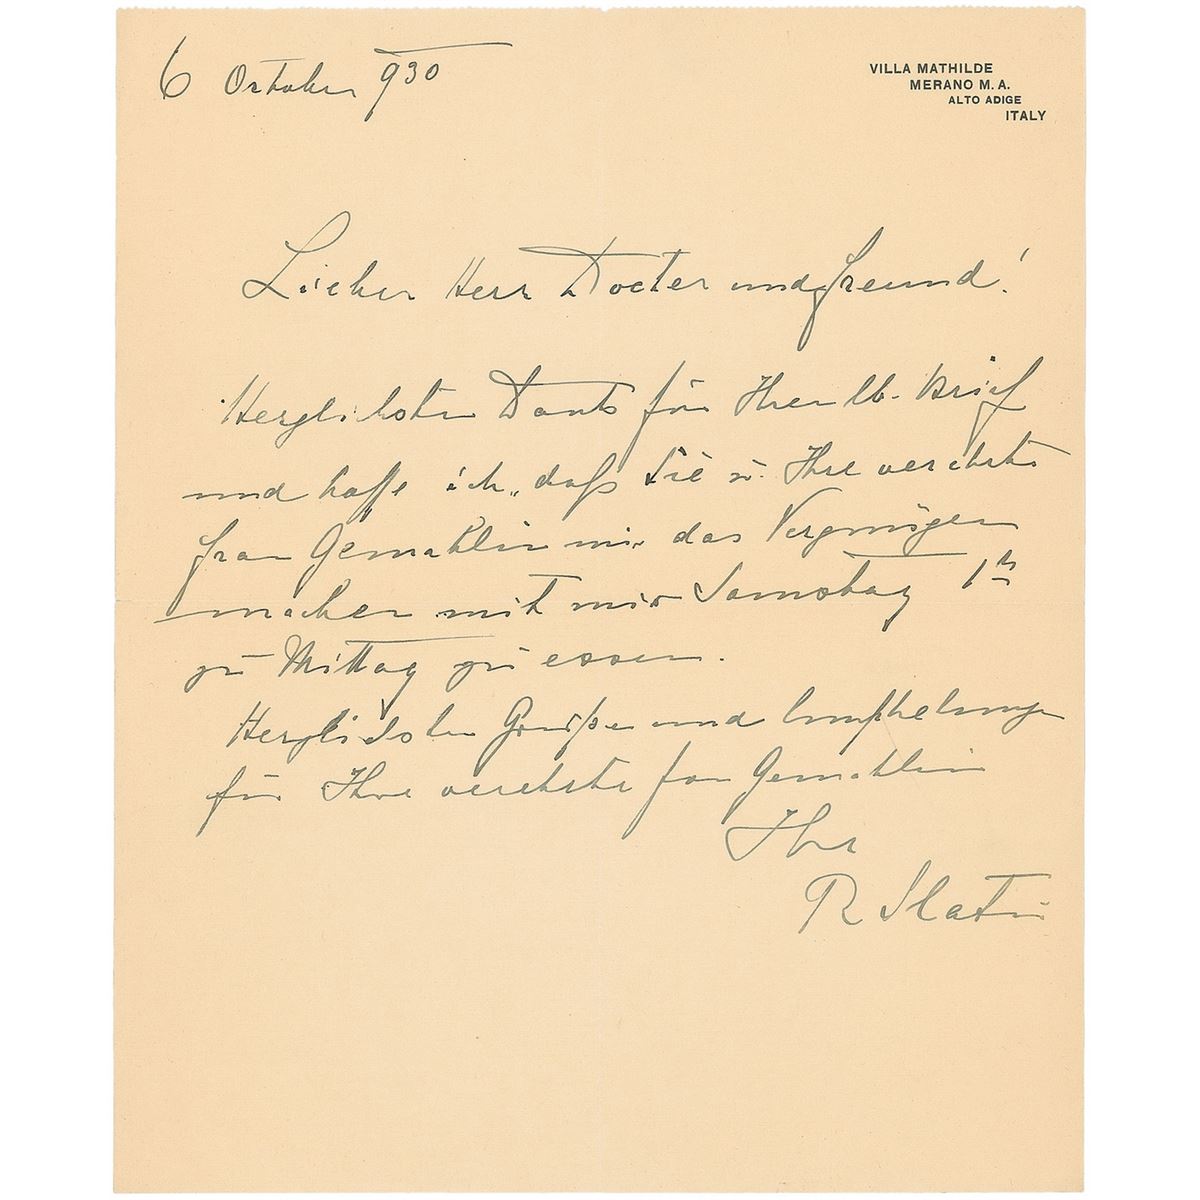 6 October 930
VILLA MATHILDE
MERANO M. A.
ALTO ADIGE
ITALY
Lieber Herr Docter und Freund!
Herzlichsten Dank für Ihren lb. Brief
und hoffe ich, daß Sie u. Ihre verehrte
Frau Gemahlin mir das Vergnügen
machen mit mir Samstag 1h
zu Mittag zu essen.
Herzlichsten Grüße und Empfehlungen
für Ihre verehrte Frau Gemahlin
Ihr
R Slatin